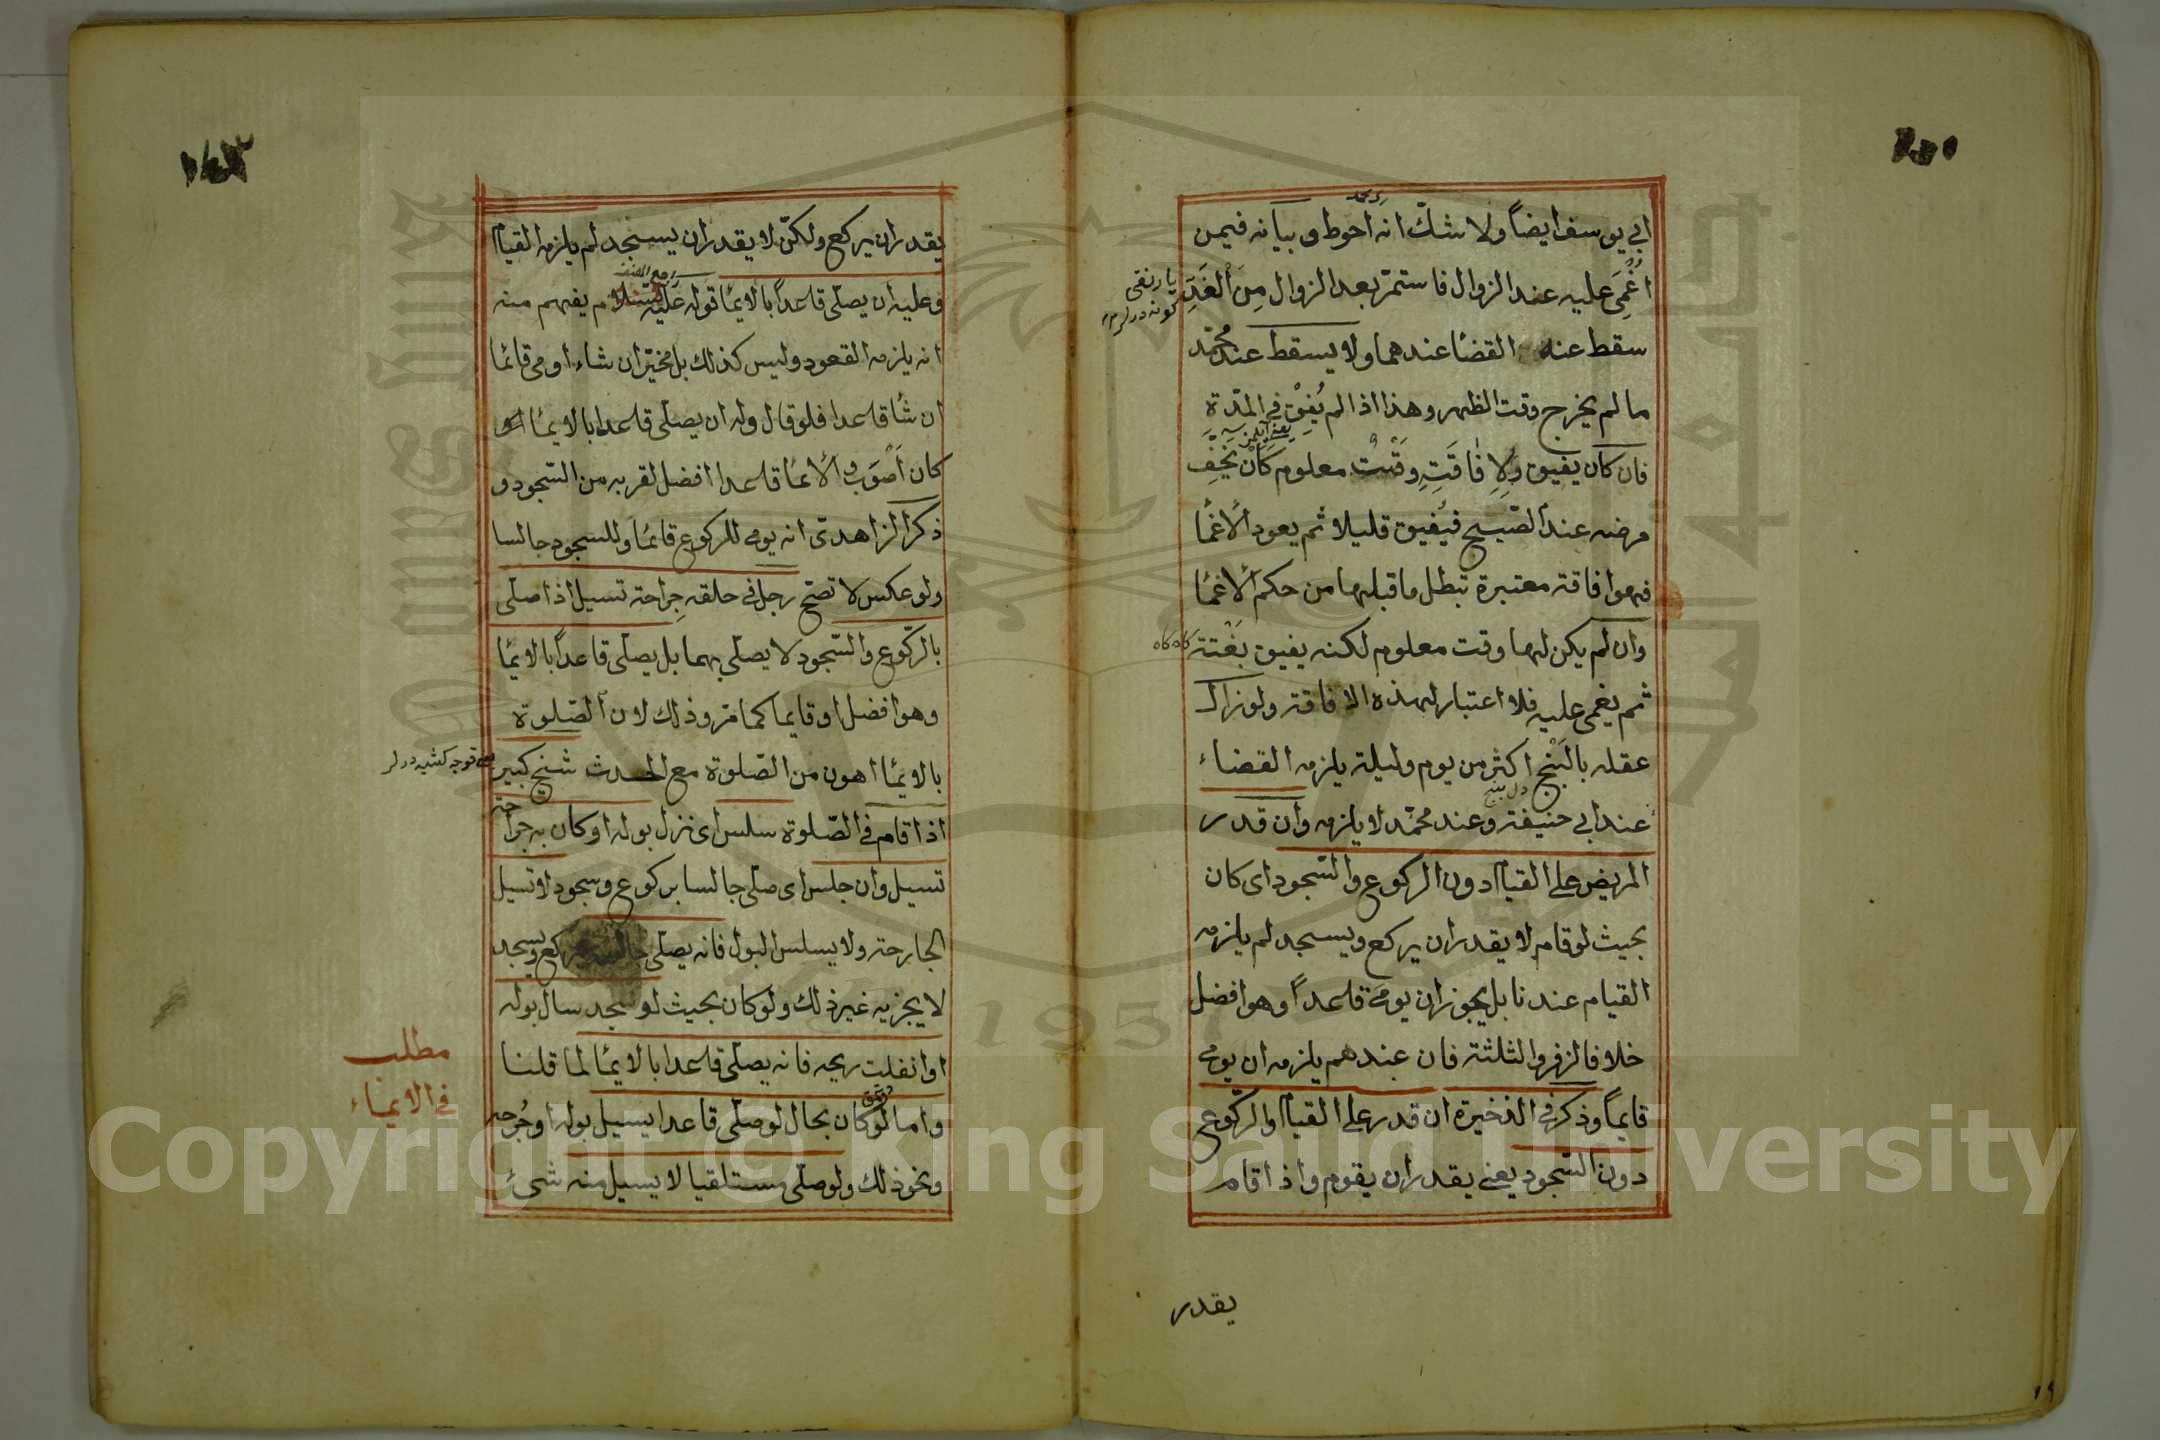 ابي يوسف ايضاً ولا شكّ انه احوط وبيانه فيمن
اُغْمِيَ عليه عند الزوال فاستمرّ بعد الزوال مِنَ الْغَدِ
سقط عنه القضا عندهما ولا يسقط عند محمّد
ما لم يخرج وقت الظهر وهذا اذا لم يُفِقْ في المدّةِ
فان كان يفيق ولِاِفَاقَتِهِ وقْتٌ معلوم كَاَنْ يَخِفَّ
مرضه عند الصّبح فيُفيق قليلا ثم يعود الْاغْمَا
فهو افاقة معتبرة تبطل ما قبلها من حكم الْاغْمَا
وان لم يكن لها وقت معلوم لكنه يفيق بَغْتَة
ثم يغمى عليه فلا اعتبار لهذه الافاقة ولو زال
عقله بالبَنْج اكثر من يوم وليلة يلزمه القضاء
عند ابي حنيفة وعند محمّد لا يلزمه وان قدر
المريض على القيام دون الركوع والسّجود اى كان
بحيث لو قام لا يقدر ان يركع ويسجد لم يلزمه
القيام عندنا بل يجوز ان يومئ قاعداً وهو افضل
خلافا لزفر والثلثة فان عندهم يلزمه ان يومئ
قايماً وذكر في الذخيرة ان قدر على القيام والرّكوع
دون السّجود يعنى يقدر ان يقوم واذا قام
يقدر
يقدر ان يركع ولكن لا يقدر ان يسجد لم يلزمه القيام
وعليه ان يصلّى قاعداً بالايمًا قوله عليه يفهم منه
انه يلزمه القعود وليس كذلك بل مخيّر ان شاء اومى قائما
ان شا قاعدا فلو قال وله ان يصلّى قاعدا بالايمًا
كان اَصْوَب والْايمًا قاعدا افضل لقربه من السّجود و
ذكر الزاهدى انه يومى للركوع قائمًا وللسجود جالسا
ولو عكس لا تصح رجل في حلقه جراحة تسيل اذا صلّى
بالرّكوع والسّجود لا يصلّى بهما بل يصلّى قاعداً بالايمًا
وهو افضل او قايما كما مرّ وذلك لان الصّلوة
بالايمًا اهون من الصّلوة مع الحدث شيخ كبير
اذا قام في الصّلوة سلس اى نزل بوله او كان به جراحة
تسيل وان جلس اى صلّى جالسا بركوع وسجود لا تسيل
الجارحة ولا يسلس البول فانه يصلّى جالسا يركع ويسجد
لا يجزيه غير ذلك ولو كان بحيث لو سجد سال بوله
او انفلت ريحه فانه يصلّى قاعدا بالايمًا لما قلنا
واما لو كان بحال لو صلّى قاعدا يسيل بوله او جُرحه
ونحو ذلك ولو صلّى مستلقيا لا يسيل منه شىء
مطلب
في الايماء
1957
Copyright (c) King Saud University